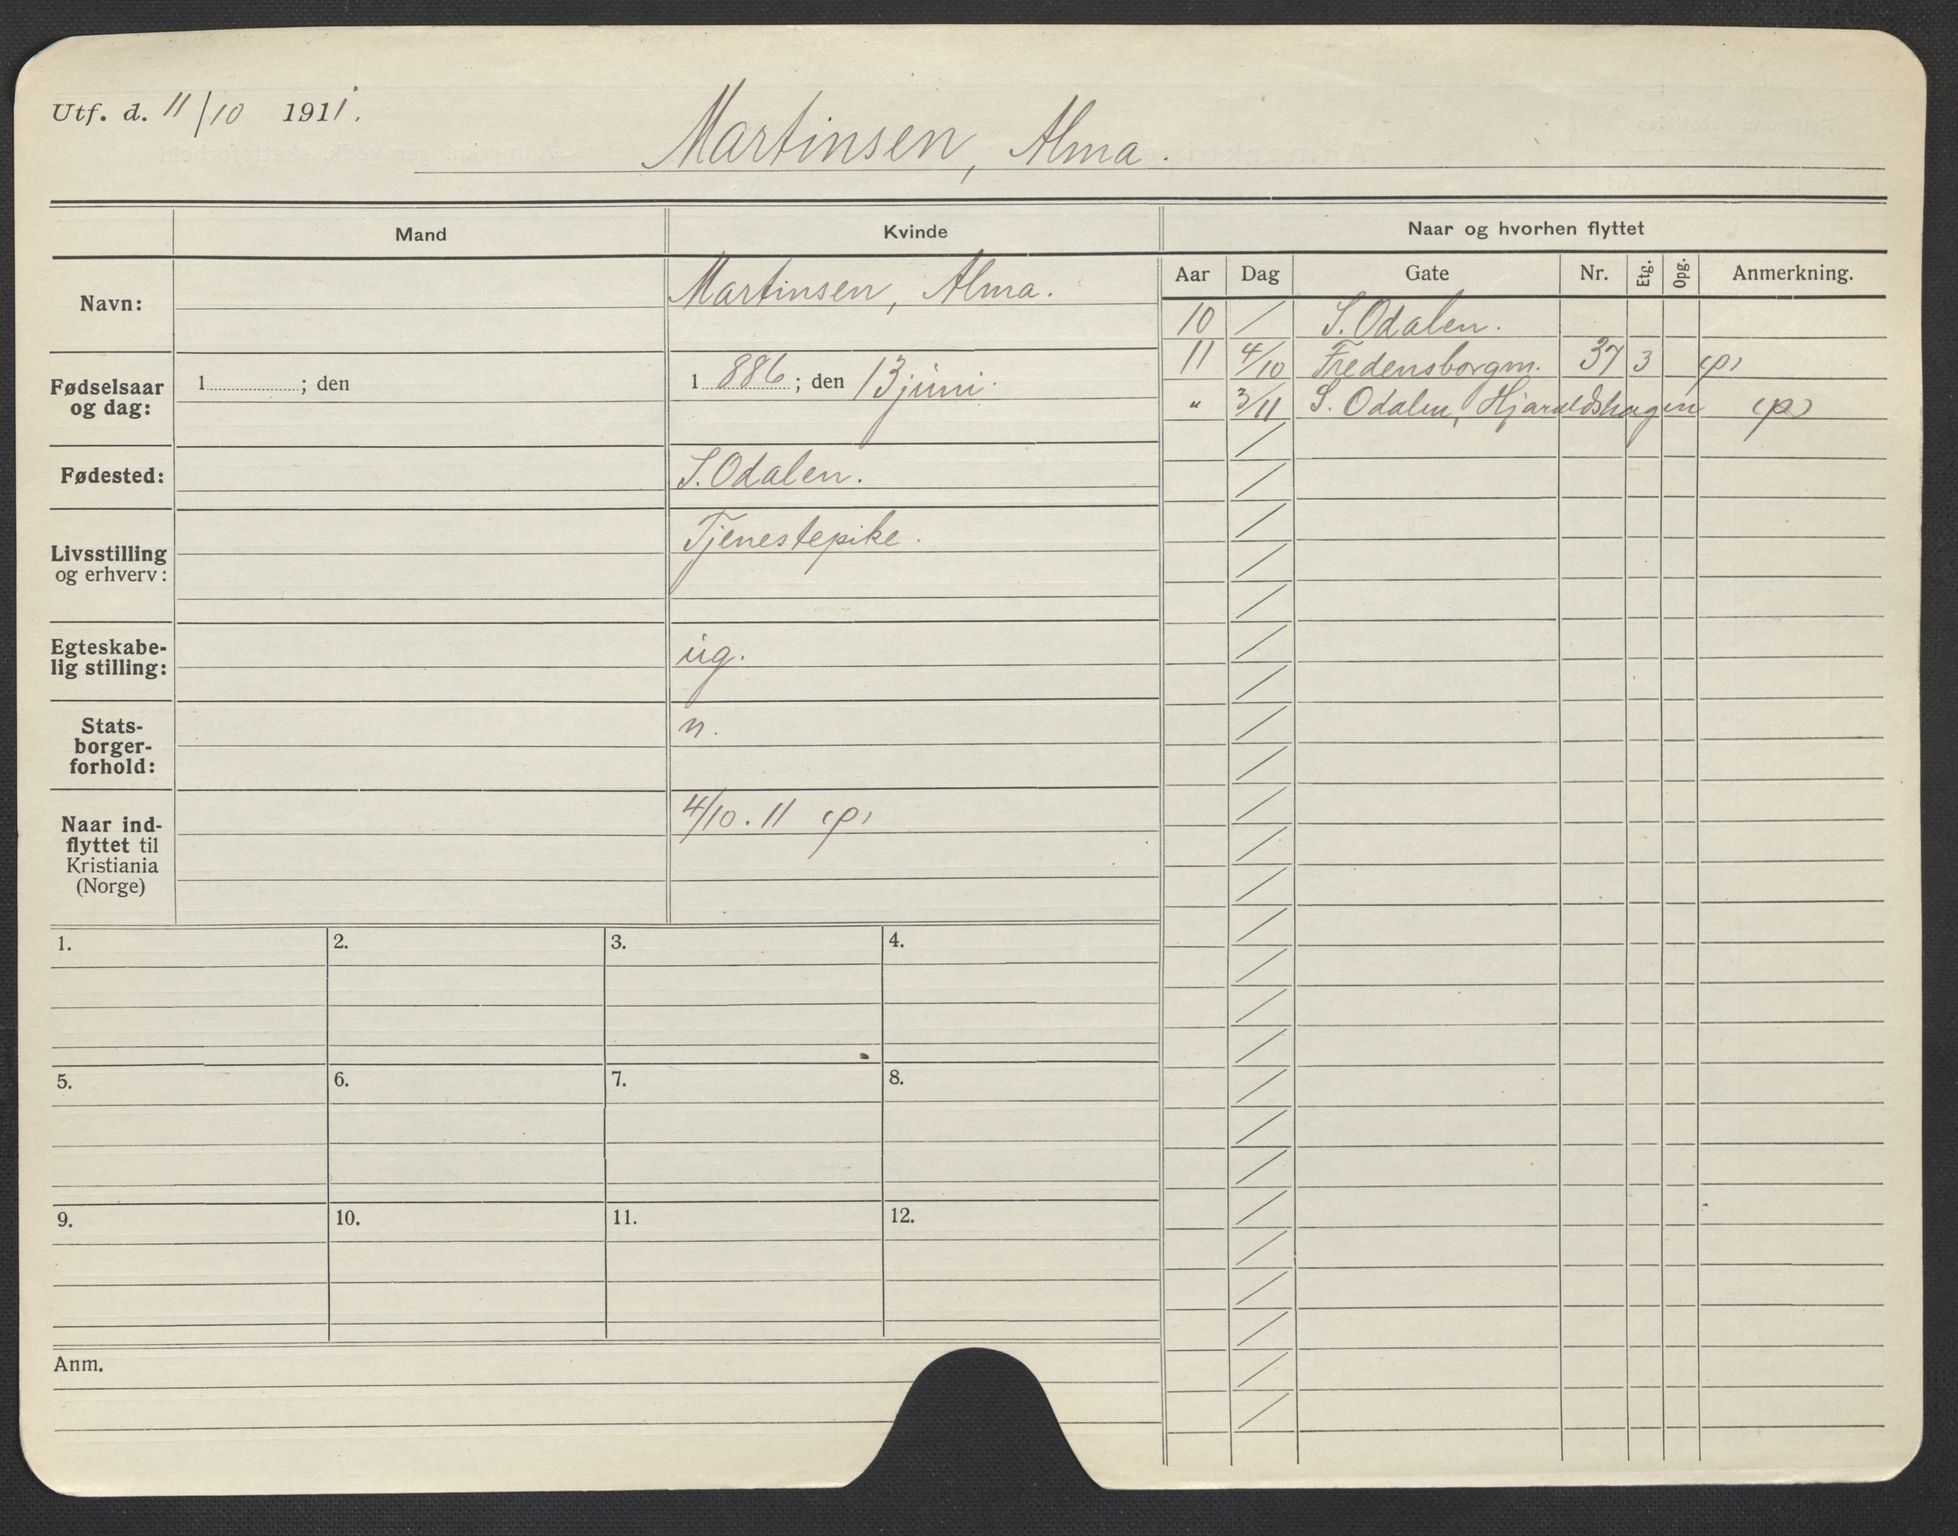 Utf. d. 11/10 1911.
Martinsen, Alma.
Mand
Kvinde
Naar og hvorhen flyttet
Aar Dag Gate Nr. Etg. Opg. Anmerkning.
Navn: Martinsen, Alma.
Fødselsaar og dag:
1 ; den
1 886 ; den 13 juni.
Fødested: S. Odalen.
Livsstilling og erhverv: Tjenestepike.
Egteskabe-
lig stilling: ug.
Stats-
borger-
forhold: n.
Naar ind-
flyttet til
Kristiania
(Norge)
4/10. 11 (p)
10 / S. Odalen.
11 4/10 Fredensborgm. 37 3 (p)
" 3/11 S. Odalen, Hjaraldshagen (p)
1. 2. 3. 4.
5. 6. 7. 8.
9. 10. 11. 12.
Anm.